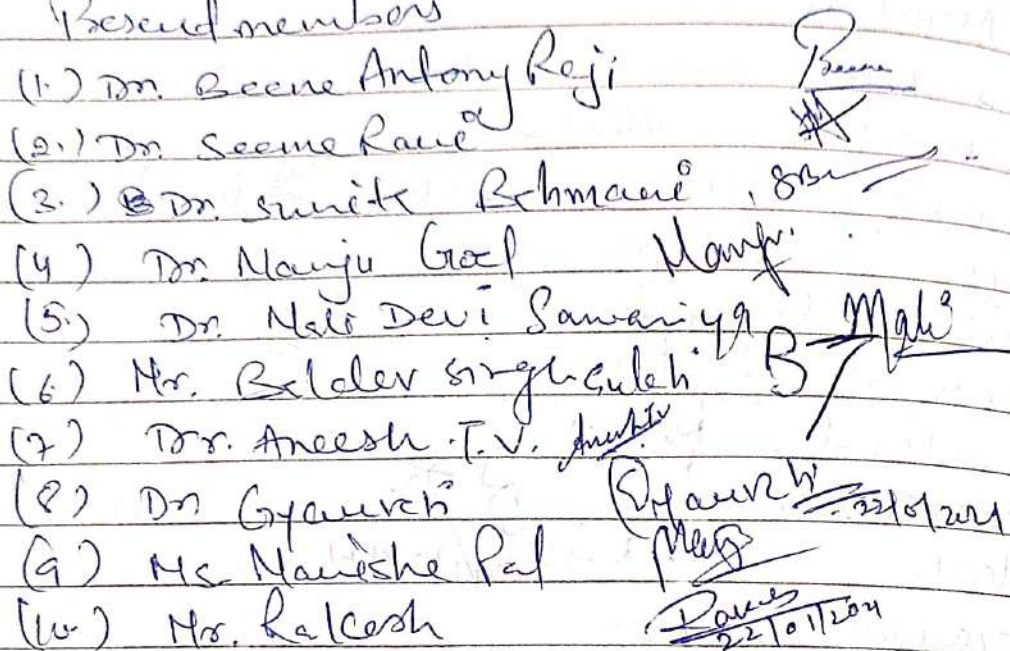 Present members
(1.) Dr. Beena Antony Raji Beena
(2.) Dr. Seema Rani
(3.) Dr. Sunita Behmani, SB
(4) Dr. Manju Goel Manju
(5.) Dr. Mali Devi Sawariya Mali
(6) Mr. Baldev Singh Gulati B
(7) Dr. Aneesh .T.V. Aneesh TV
(8) Dr Gyanvati Gyanvati 22/01/2021
(9) Ms. Manisha Pal
(10.) Mr. Rakesh Rakesh 22/01/2021